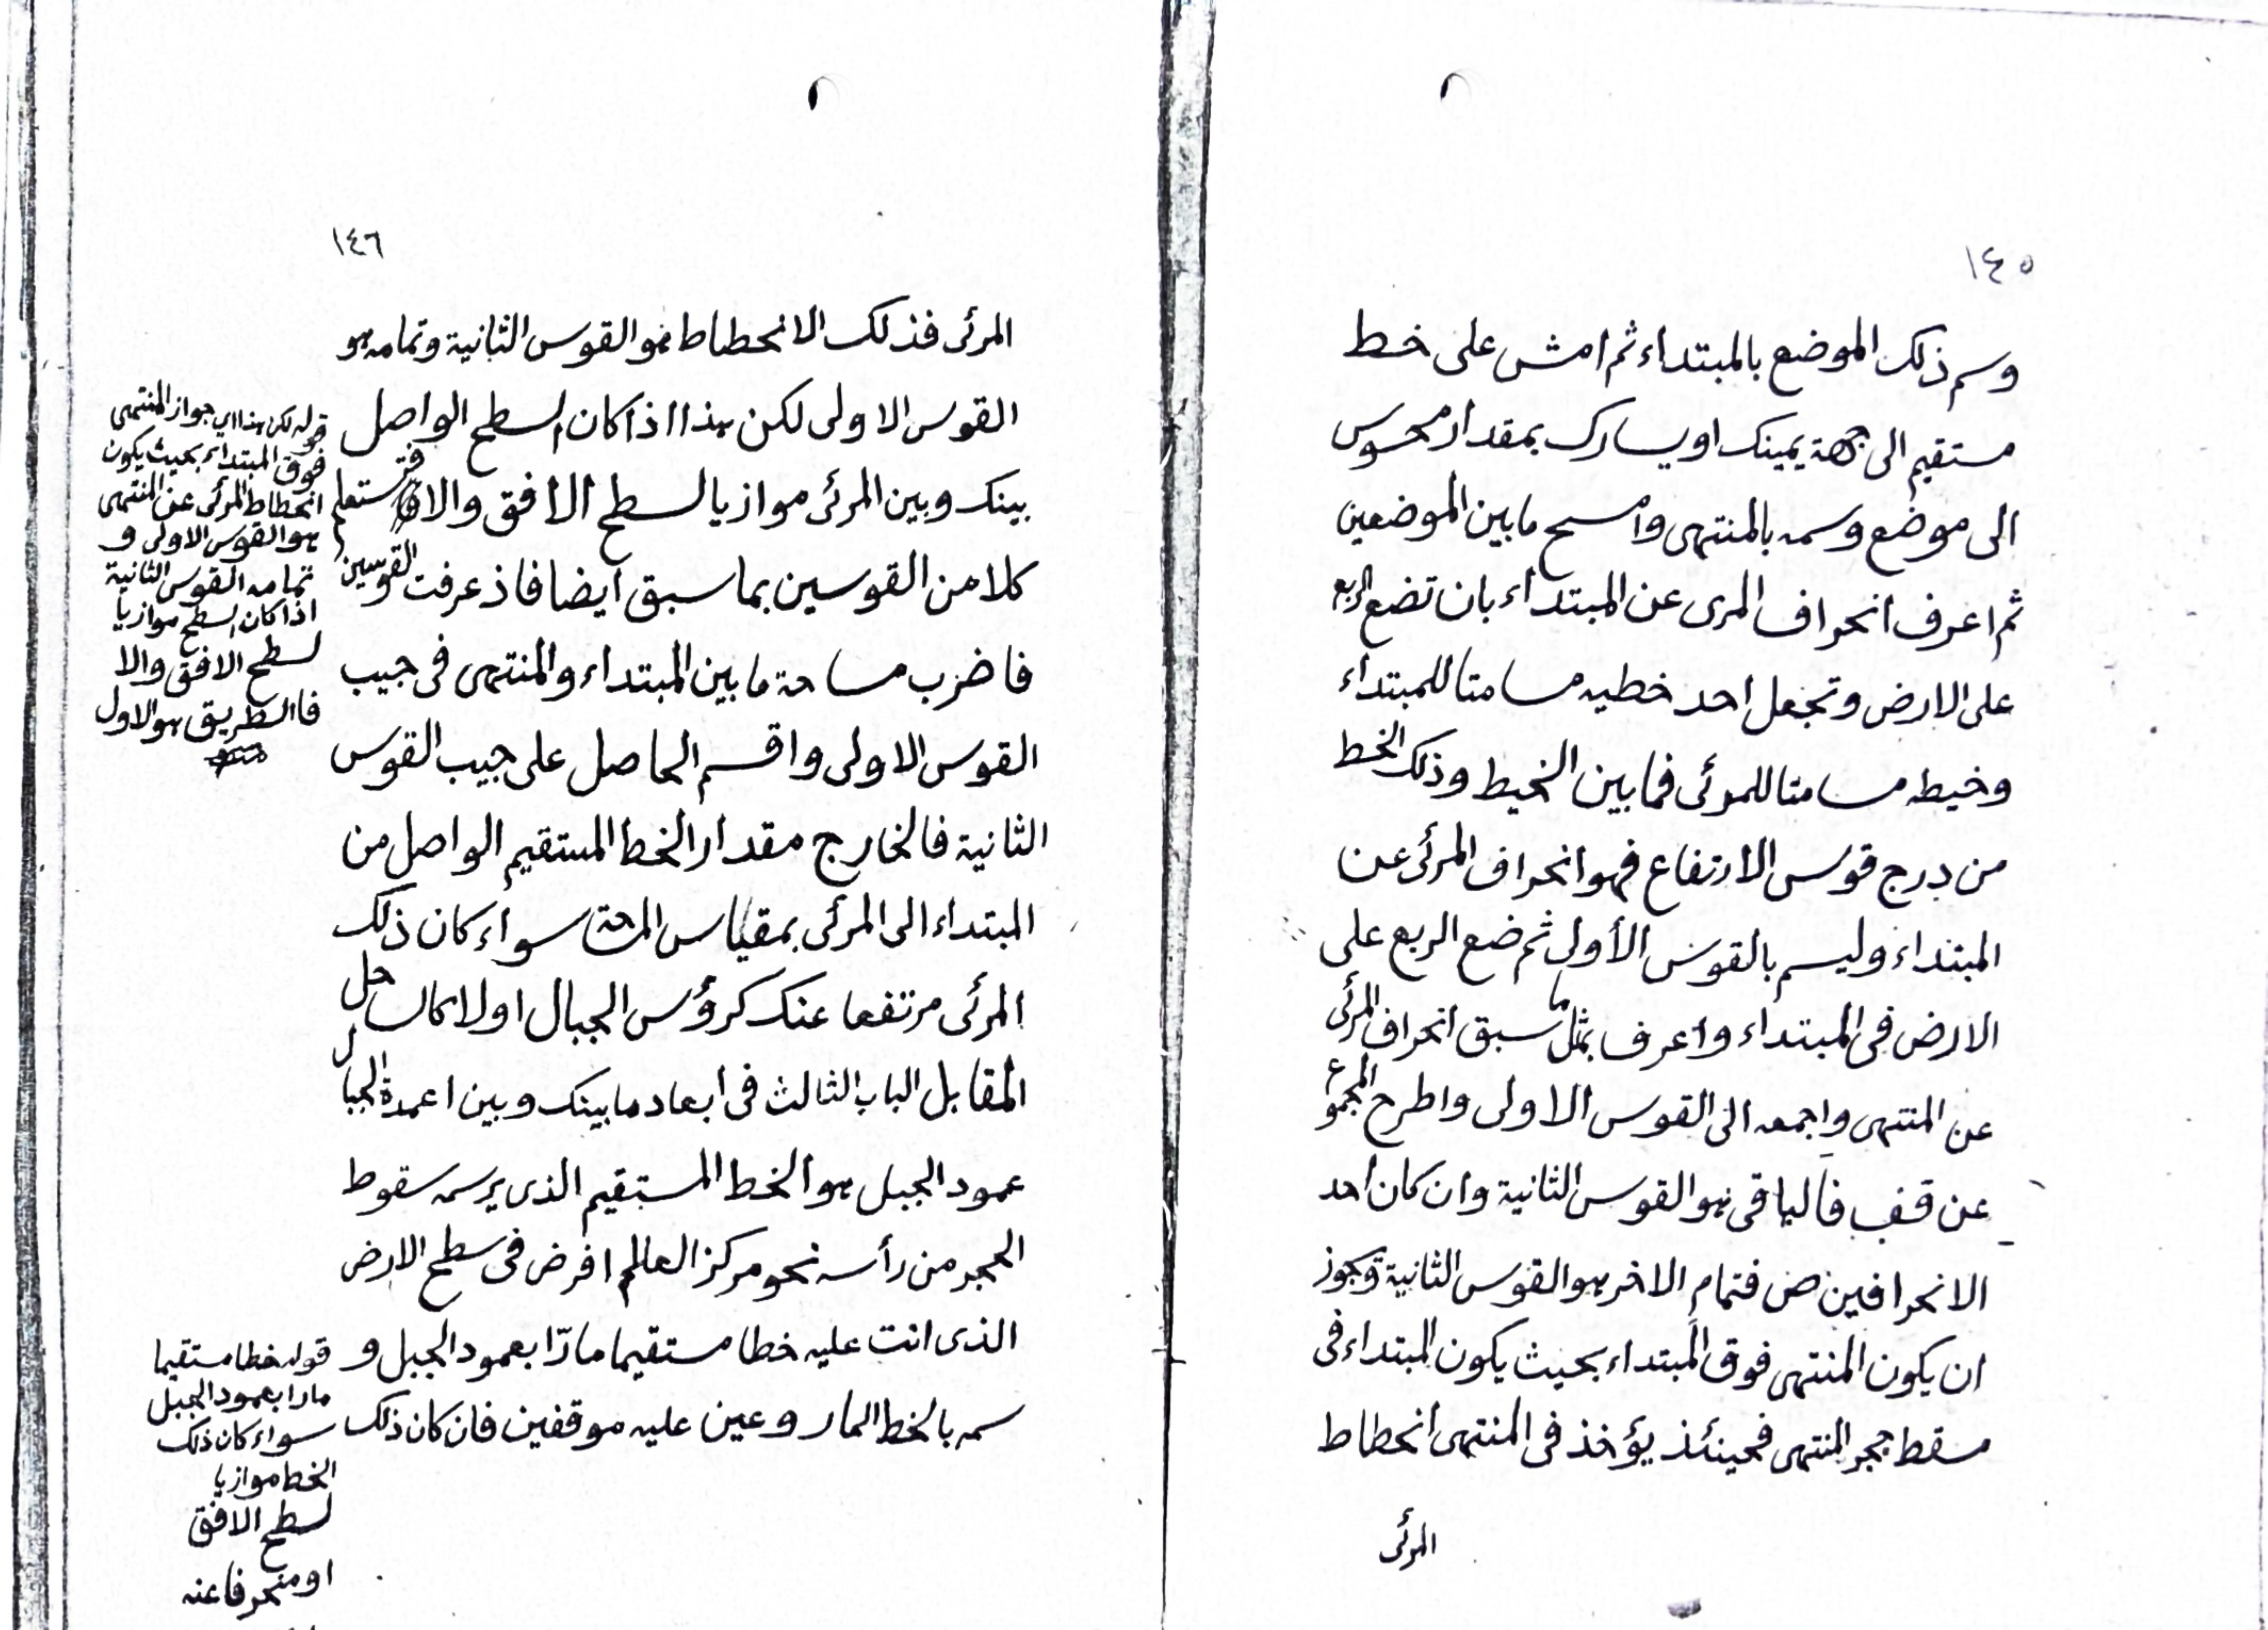 ١٤٥
وسم ذلك الموضع بالمبتداء ثم امش على خط
مستقيم الى جهة يمينك او يسارك بمقدار محسوس
الى موضع وسمه بالمنتهى وامسح ما بين الموضعين
ثم اعرف انحراف المرى عن المبتداء بان تضع الربع
على الارض وتجعل احد خطيه مسامتا للمبتداء
وخيطه مسامتا للمرئى فما بين الخيط وذلك الخط
من درج قوس الارتفاع فهو انحراف المرئى عن
المبتداء وليسم بالقوس الأولى ثم ضع الربع على
الارض فى المبتداء واعرف بمثل ما سبق انحراف المرئى
عن المنتهى واجمعه الى القوس الاولى واطرح المجموع
عن قف فالباقى هو القوس الثانية وان كان احد
الانحرافين ص فتمام الاخر هو القوس الثانية ويجوز
ان يكون المنتهى فوق المبتداء بحيث يكون المبتداء فى
مسقط حجر المنتهى فحينئذ يؤخذ فى المنتهى انحطاط
المرئى
١٤٦
المرئى فذلك الانحطاط هو القوس الثانية وتمامه هو
القوس الاولى لكن هذا اذا كان السطح الواصل
بينك وبين المرئى موازيا لسطح الأفق والا فتستعلم
كلا من القوسين بما سبق ايضا فاذ عرفت القوسين
فاضرب مساحة ما بين المبتداء والمنتهى فى جيب
القوس الاولى واقسم الحاصل على جيب القوس
الثانية فالخارج مقدار الخط المستقيم الواصل من
المبتداء الى المرئى بمقياس المساحة سواء كان ذلك
المرئى مرتفعا عنك كرؤس الجبال اولا كالساحل
المقابل الباب الثالث فى ابعاد ما بينك وبين اعمدة الجبال
عمود الجبل هو الخط المستقيم الذى يرسمه سقوط
الحجر من رأسه نحو مركز العالم افرض فى سطح الارض
الذى انت عليه خطا مستقيما مارّا بعمود الجبل و
سمه بالخط المار وعين عليه موقفين فان كان ذلك
قوله لكن هذا اى جواز المنتهى
فوق المبتداء بحيث يكون
انحطاط المرئى عن المنتهى
هو القوس الاولى و
تمامه القوس الثانية
اذا كان السطح موازيا
لسطح الافق والا
فاالطريق هو الاول
قوله خطا مستقيما
مارا بعمود الجبل
سواء كان ذلك
الخط موازيا
لسطح الافق
او منحرفا عنه